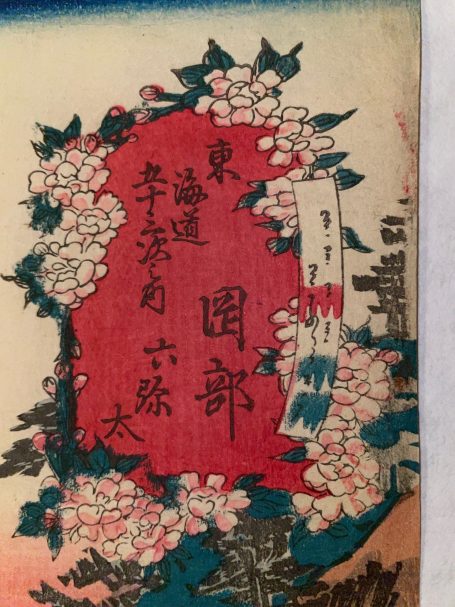 東海道
五十三次之内
岡部
六弥太